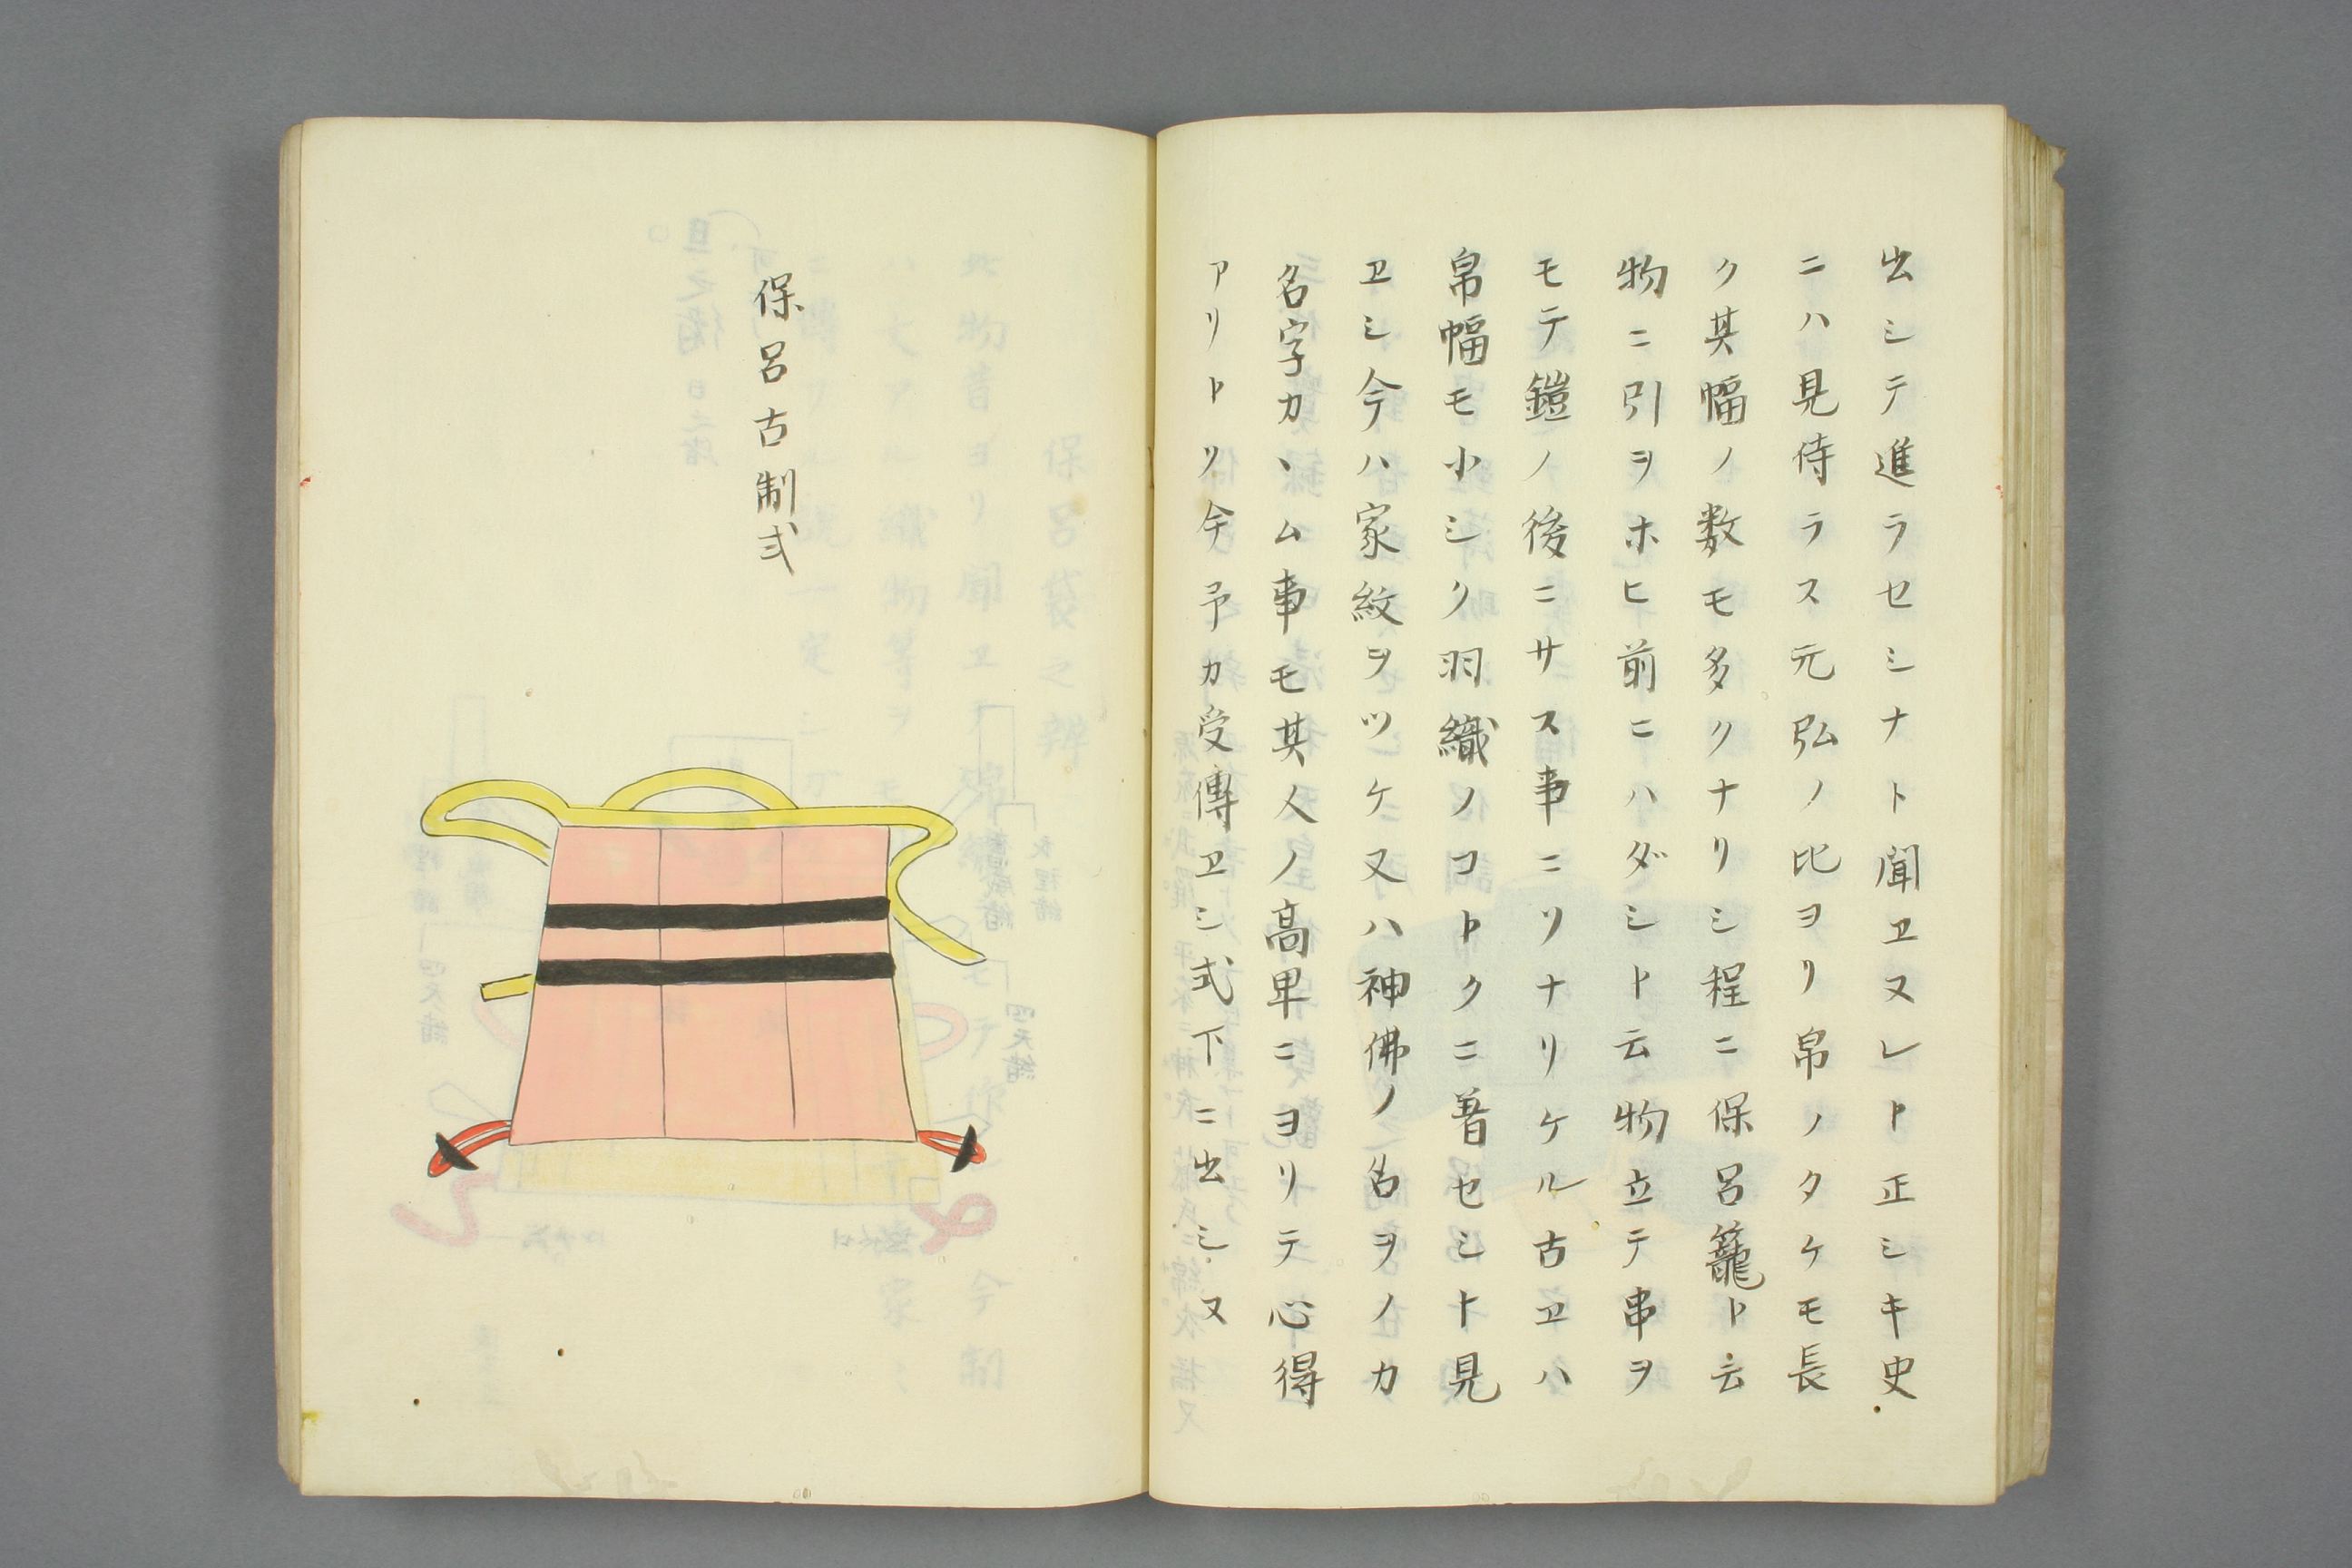 出シテ進ラセシナト聞ヱヌレト正シキ史
ニハ見侍ラス元弘ノ比ヨリ帛ノタケモ長
ク其幅ノ数モ多クナリシ程ニ保呂籠ト云
物ニ引ヲホヒ前ニハダシト云物立テ串ヲ
モテ鎧ノ後ニサス事ニソナリケル古ヱハ
帛幅モ小シク羽織ノコトクニ着セシト見
ヱシ今ハ家紋ヲツケ又ハ神佛ノ名ヲノカ
名字カヽム事モ其人ノ高卑ニヨリテ心得
アリトソ今予カ受傳ヱシ式下ニ出シヌ
保呂古制式